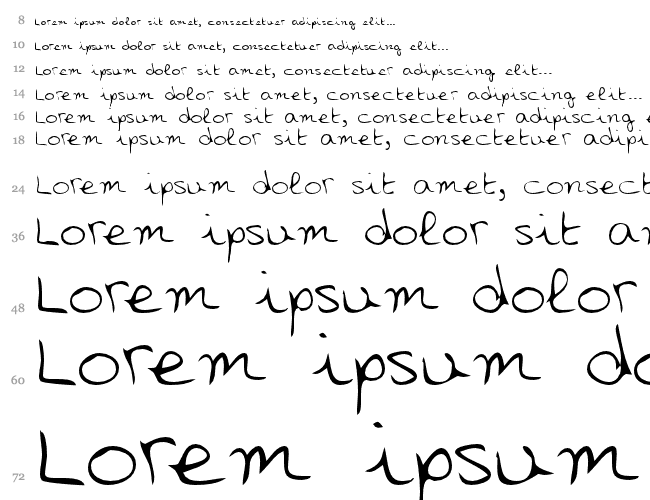 8 Lorem ipsum dolor sit amet, consectetuer adipiscing elit...
10 Lorem ipsum dolor sit amet, consectetuer adipiscing elit...
12 Lorem ipsum dolor sit amet, consectetuer adipiscing elit...
14 Lorem ipsum dolor sit amet, consectetuer adipiscing elit...
16 Lorem ipsum dolor sit amet, consectetuer adipiscing e
18 Lorem ipsum dolor sit amet, consectetuer adipi
24 Lorem ipsum dolor sit amet, consect
36 Lorem ipsum dolor sit am
48 Lorem ipsum dolor
60 Lorem ipsum do
72 Lorem ipsum